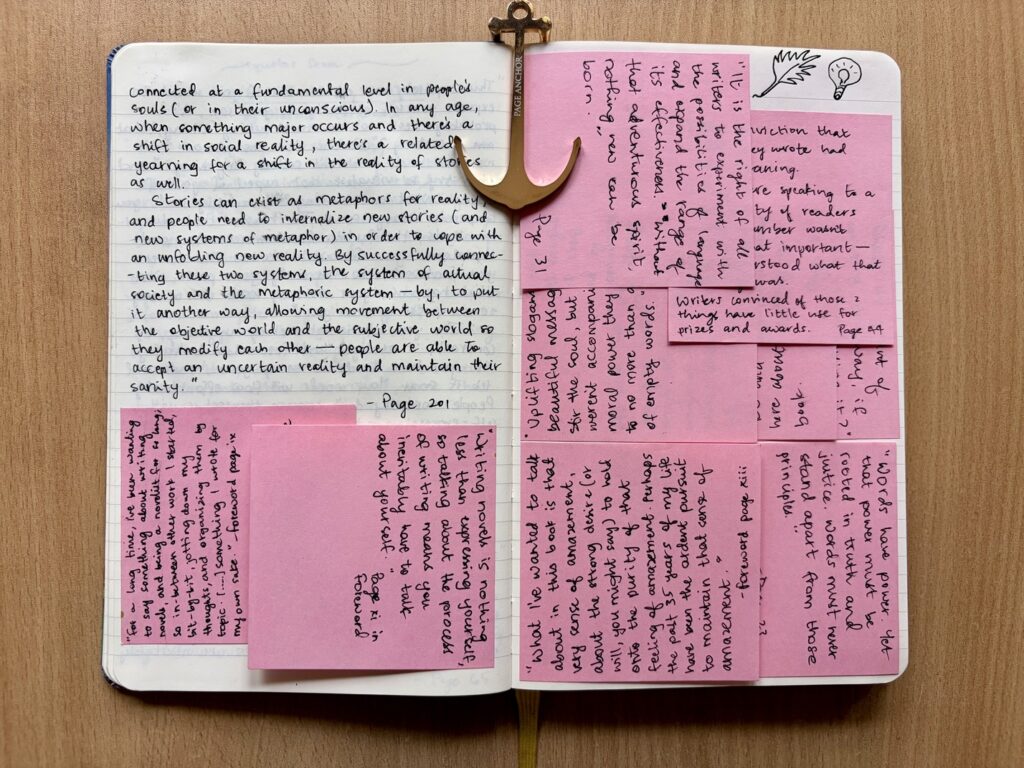 connected at a fundamental level in people's
souls (or in their unconscious). In any age,
when something major occurs and there's a
shift in social reality, there's a related
yearning for a shift in the reality of stories
as well.
Stories can exist as metaphors for reality,
and people need to internalize new stories (and
new systems of metaphor) in order to cope with
an unfolding new reality. By successfully connec-
-ting these two systems, the system of actual
society and the metaphoric system — by, to put
it another way, allowing movement between
the objective world and the subjective world so
they modify each other — people are able to
accept an uncertain reality and maintain their
sanity."
- Page 201
"For a long time, I've been wanting
to say something about writing
novels, and being a novelist for so long,
so in-between other work I started,
bit-by-bit, jotting down my
thoughts, and organizing them by
topic. [...] something I wrote for
my own sake." - foreword page ix
"Writing novels is nothing
less than expressing yourself,
so talking about the process
of writing means you
inevitably have to talk
about yourself."
Page xi in
Foreword
PAGE ANCHOR
"It is the right of all
writers to experiment with
the possibilities of language
and expand the range of
its effectiveness. Without
that adventurous spirit,
nothing new can be
born."
Page 31
that
ey wrote had
aning.
re speaking to a
ty of readers
mber wasn't
at important—
rstood what that
was.
Writers convinced of those 2
things have little use for
prizes and awards.
Page 44
"Uplifting slogans
beautiful messag
stir the soul, but
weren't accompani
moral power they
to no more than
of empty words."
Book.
"What I've wanted to talk
about in this book is that
very sense of amazement,
about the strong desire (or
will, you might say) to hold
onto the purity of that
feeling of amazement. Perhaps
the past 35 years of my life
have been the ardent pursuit
to maintain that sense of
amazement."
- foreword page xiii
"Words have power. Yet
that power must be
rooted in truth and
justice. Words must never
stand apart from those
principles."
23